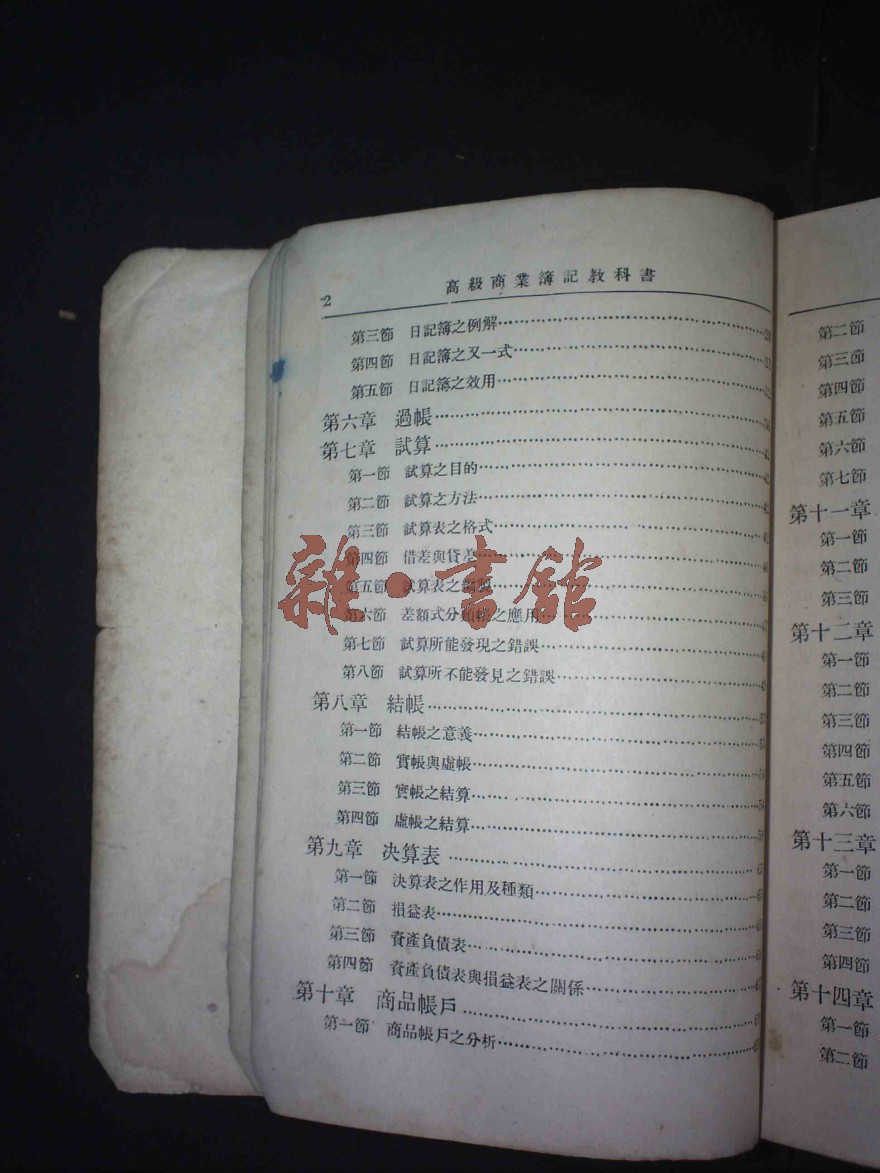 2
高級商業簿記教科書
第三節 日記簿之例解
第四節 日記簿之又一式
第五節 日記簿之效用
第六章 過帳
第七章 試算
第一節 試算之目的
第二節 試算之方法
第三節 試算表之格式
第四節 借差與貸差
第五節 試算表之編製
第六節 差額式分類帳之應用
第七節 試算所能發現之錯誤
第八節 試算所不能發見之錯誤
第八章 結帳
第一節 結帳之意義
第二節 實帳與虛帳
第三節 實帳之結算
第四節 虛帳之結算
第九章 決算表
第一節 決算表之作用及種類
第二節 損益表
第三節 資產負債表
第四節 資產負債表與損益表之關係
第十章 商品帳戶
第一節 商品帳戶之分析
雜·書館
第二節
第三節
第四節
第五節
第六節
第七節
第十一章
第一節
第二節
第三節
第十二章
第一節
第二節
第三節
第四節
第五節
第六節
第十三章
第一節
第二節
第三節
第四節
第十四章
第一節
第二節